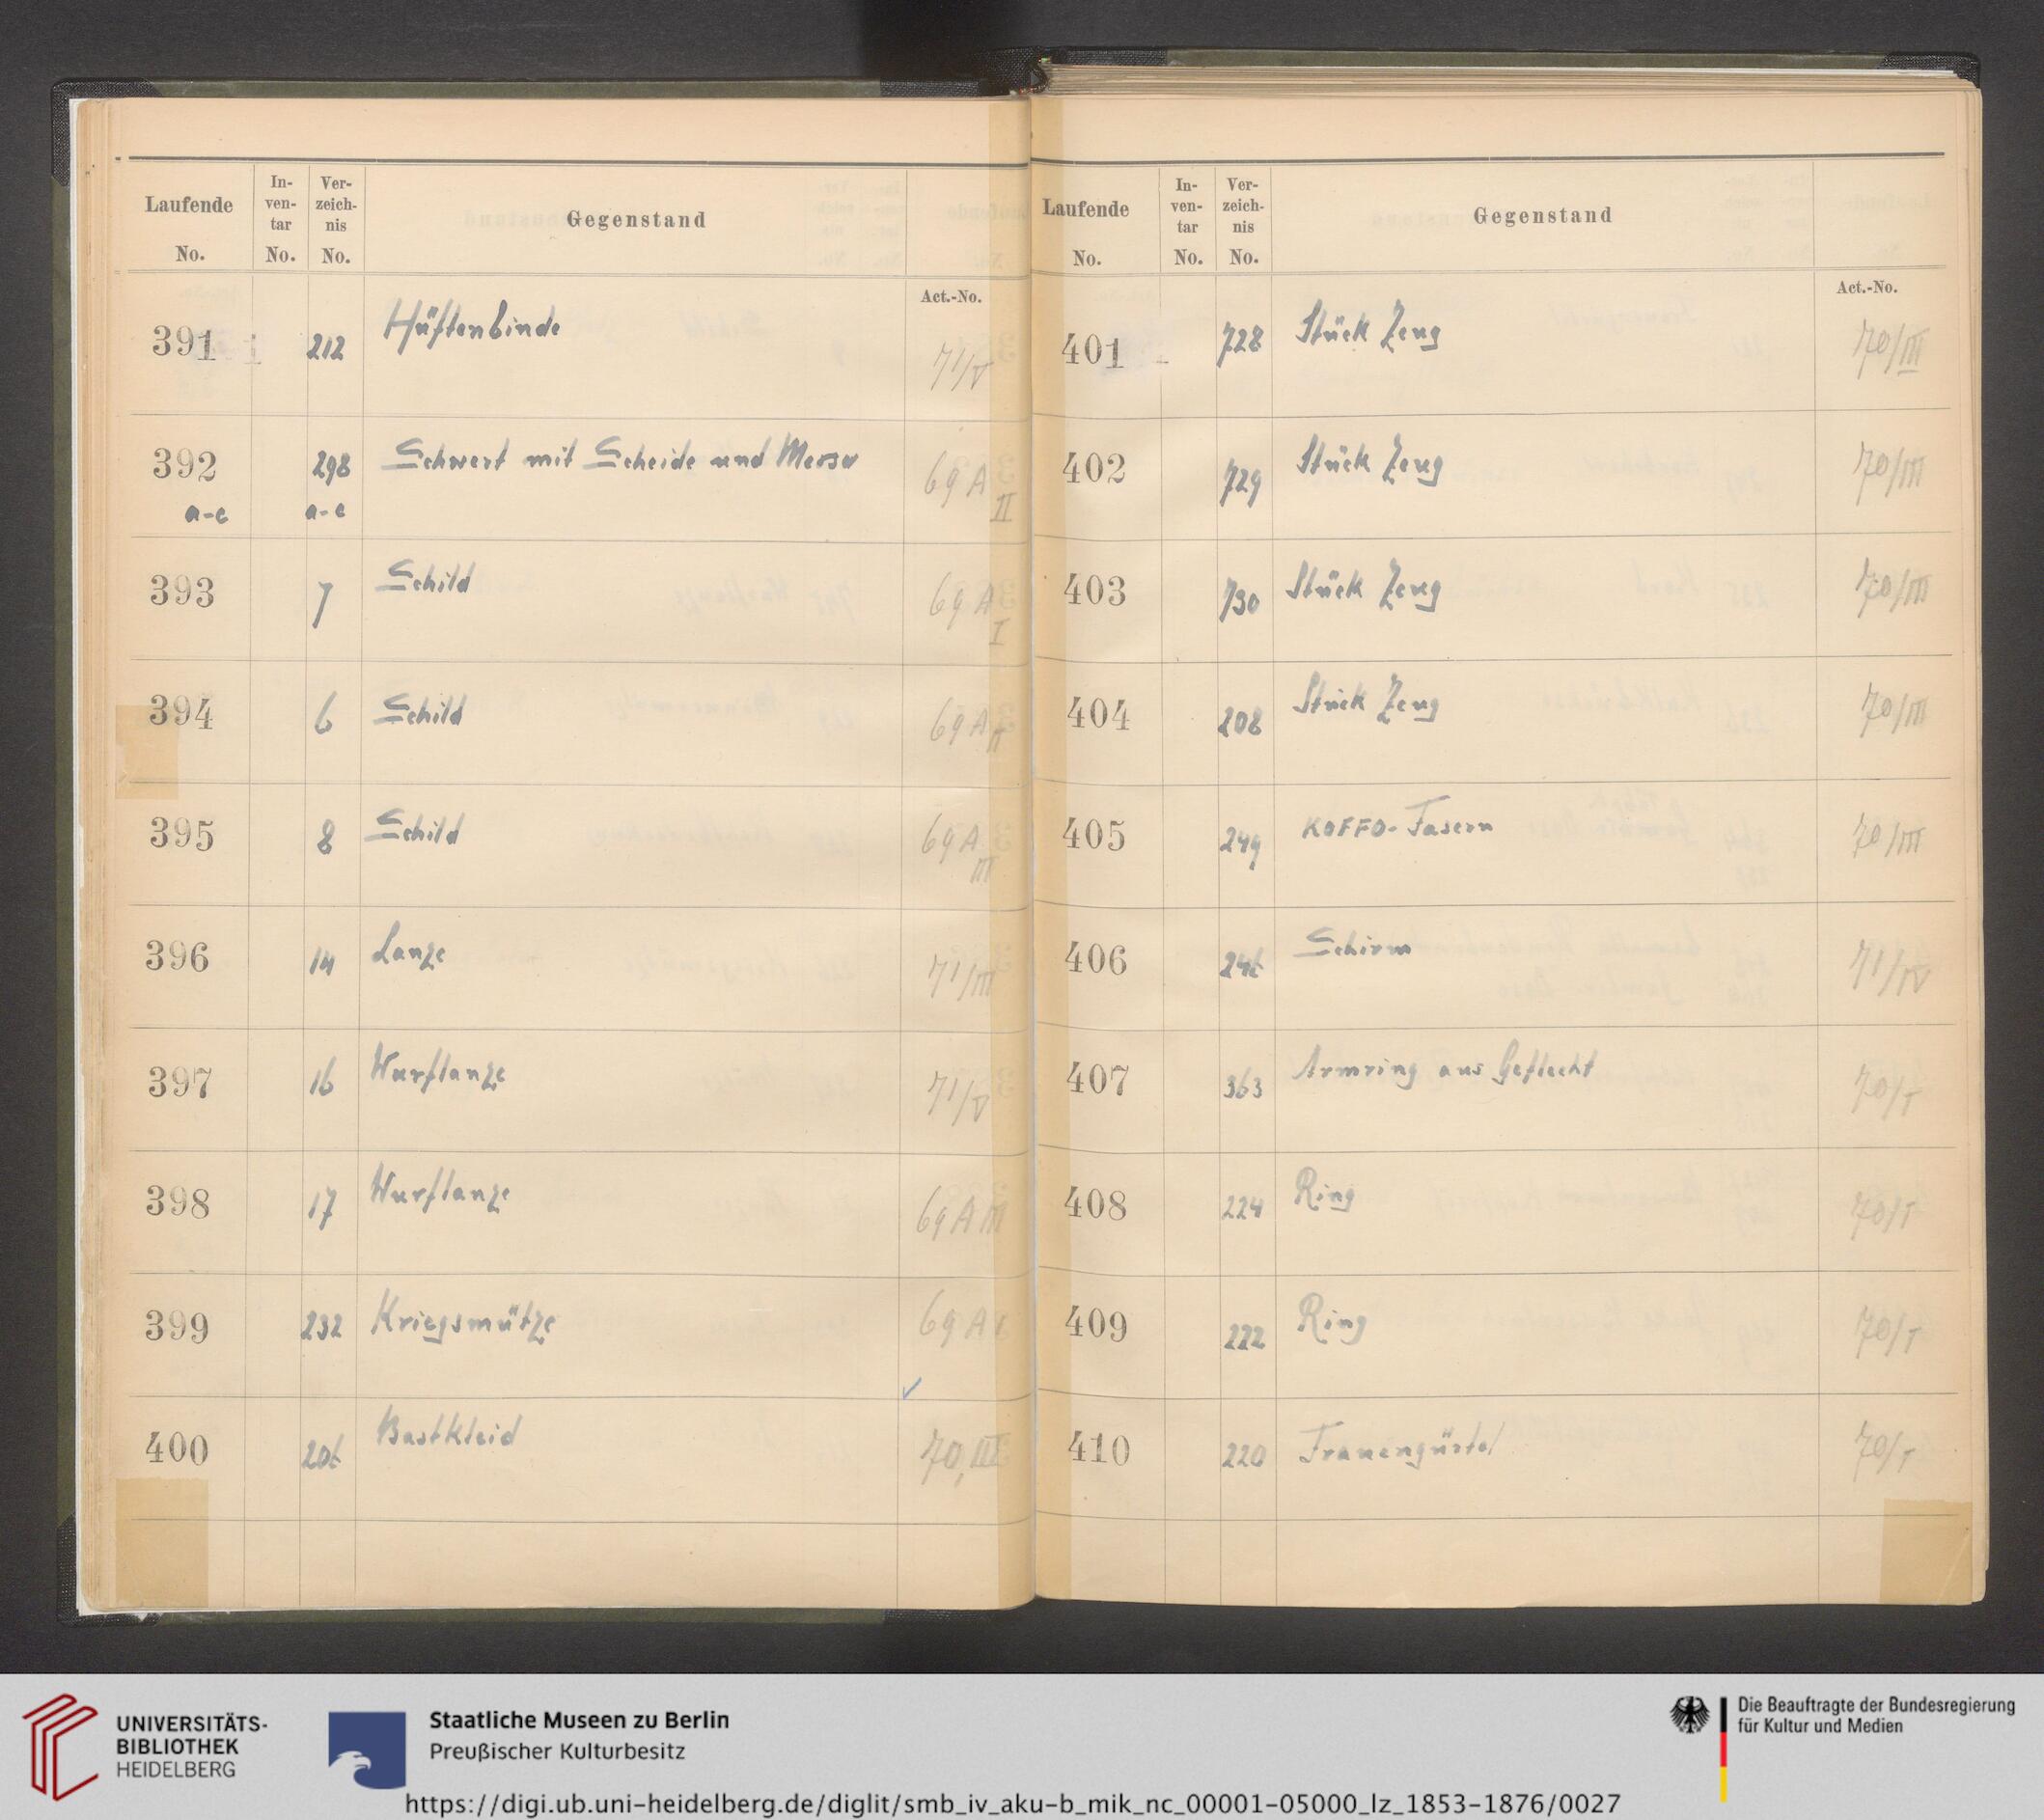 Laufende No. In-ven-tar No. Ver-zeich-nis No. Gegenstand
Act.-No.
391 212 Hüftenbinde 71/V
392 298 Schwert mit Scheide und Messer 69 A II
a-c a-c
393 7 Schild 69 A I
394 6 Schild 69 A II
395 8 Schild 69 A III
396 14 Lanze 71/III
397 16 Wurflanze 71/V
398 17 Wurflanze 69 A III
399 232 Kriegsmütze 69 A I
400 206 Bastkleid 70, III
Laufende No. In-ven-tar No. Ver-zeich-nis No. Gegenstand
Act.-No.
401 728 Stück Zeug 70/III
402 729 Stück Zeug 70/III
403 730 Stück Zeug 70/III
404 208 Stück Zeug 70/III
405 249 KOFFO-Fasern 70/III
406 246 Schirm 71/IV
407 363 Armring aus Geflecht 70/I
408 224 Ring 70/I
409 222 Ring 70/I
410 220 Frauengürtel 70/I
UNIVERSITÄTS-
BIBLIOTHEK
HEIDELBERG
Staatliche Museen zu Berlin
Preußischer Kulturbesitz
Die Beauftragte der Bundesregierung
für Kultur und Medien
https://digi.ub.uni-heidelberg.de/diglit/smb_iv_aku-b_mik_nc_00001-05000_lz_1853-1876/0027